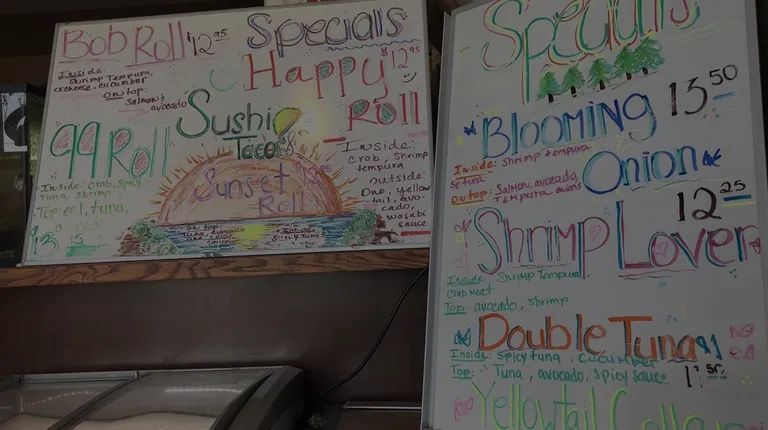 Bob Roll $12.95
Inside:
Shrimp Tempura,
cucumber
On top:
Salmon,
avocado
Specials
Happy
Roll
12.95
Inside:
Crab, Shrimp
tempura
Outside:
Ono, yellow
tail, avo-
cado,
wasabi
sauce
Sushi
Tacos
99 Roll
Inside: Crab, Spicy
Tuna, Shrimp
Top: eel, tuna,
Sunset
Roll
on top
Tuna, avocado
Inside:
Spicy tuna
Specials
Blooming
Onion
13.50
Inside: Shrimp tempura
sp tuna
On top: Salmon, avocado,
Tempura onions
12.25
Shrimp Lover
Inside: Shrimp Tempura,
Crab meat
Top: avocado, shrimp
Double Tuna
Inside: Spicy tuna, cucumber
Top: Tuna, avocado, spicy sauce
Yellowtail